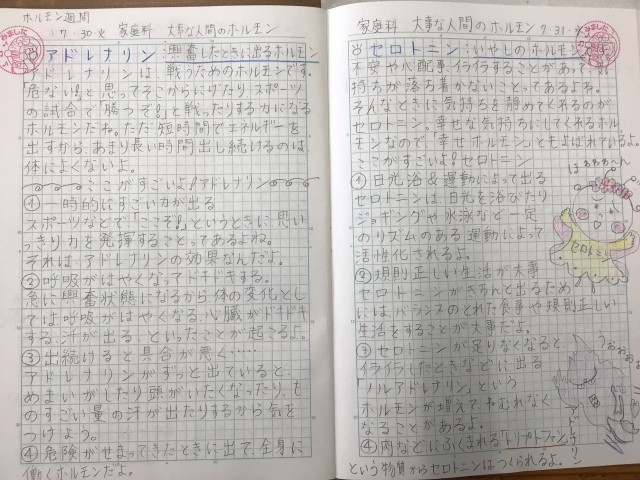 ホルモン週間
7.30火 家庭科 大事な人間のホルモン
めあて アドレナリン:興奮したときに出るホルモン
アドレナリンは、戦うためのホルモンです。
「危ない!」と思ってそこからにげたり、スポーツ
の試合で「勝つぞ!」と戦ったりする力になる
ホルモンだね。ただ、短時間でエネルギーを
出すから、あまり長い時間出し続けるのは
体によくないよ。
ここがすごいよ!アドレナリン
①一時的にすごい力が出る
スポーツなどで「ここぞ!」というときに、思い
っきり力を発揮することってあるよね。
それは、アドレナリンの効果なんだよ。
②呼吸がはやくなってドキドキする。
急に興奮状態になるから、体の変化とし
ては、呼吸がはやくなる、心臓がドキドキ
する、汗が出る、といったことが起こるよ。
③出続けると具合が悪く……
アドレナリンがずっと出ていると、
めまいがしたり頭がいたくなったり、も
のすごい量の汗が出たりするから気を
つけよう。
④危険がせまってきたときに出て、全身に
働くホルモンだよ。
家庭科 大事な人間のホルモン 7.31.水
セロトニン:いやしのホルモン
不安や心配事、イライラすることがあって、気
持ちが落ち着かないことってあるよね。
そんなときに気持ちを静めてくれるのが
セロトニン。幸せな気持ちにしてくれるホル
モンなので、「幸せホルモン」ともよばれているよ。
ここがすごいよ!セロトニン
①日光浴&運動によって出る
セロトニンは、日光を浴びたり
ジョギングや水泳など一定
のリズムのある運動によって
活性化されるよ。
②規則正しい生活が大事
セロトニンがきちんと出るため
には、バランスのとれた食事や規則正しい
生活をすることが大事だよ。
③セロトニンが足りなくなると
イライラしたときなどに出る
「ノルアドレナリン」という
ホルモンが増えて、やむれなく
なることがあるよ。
④肉などにふくまれる「トリプトファン」
という物質からセロトニンはつくられるよ。
セロトニン